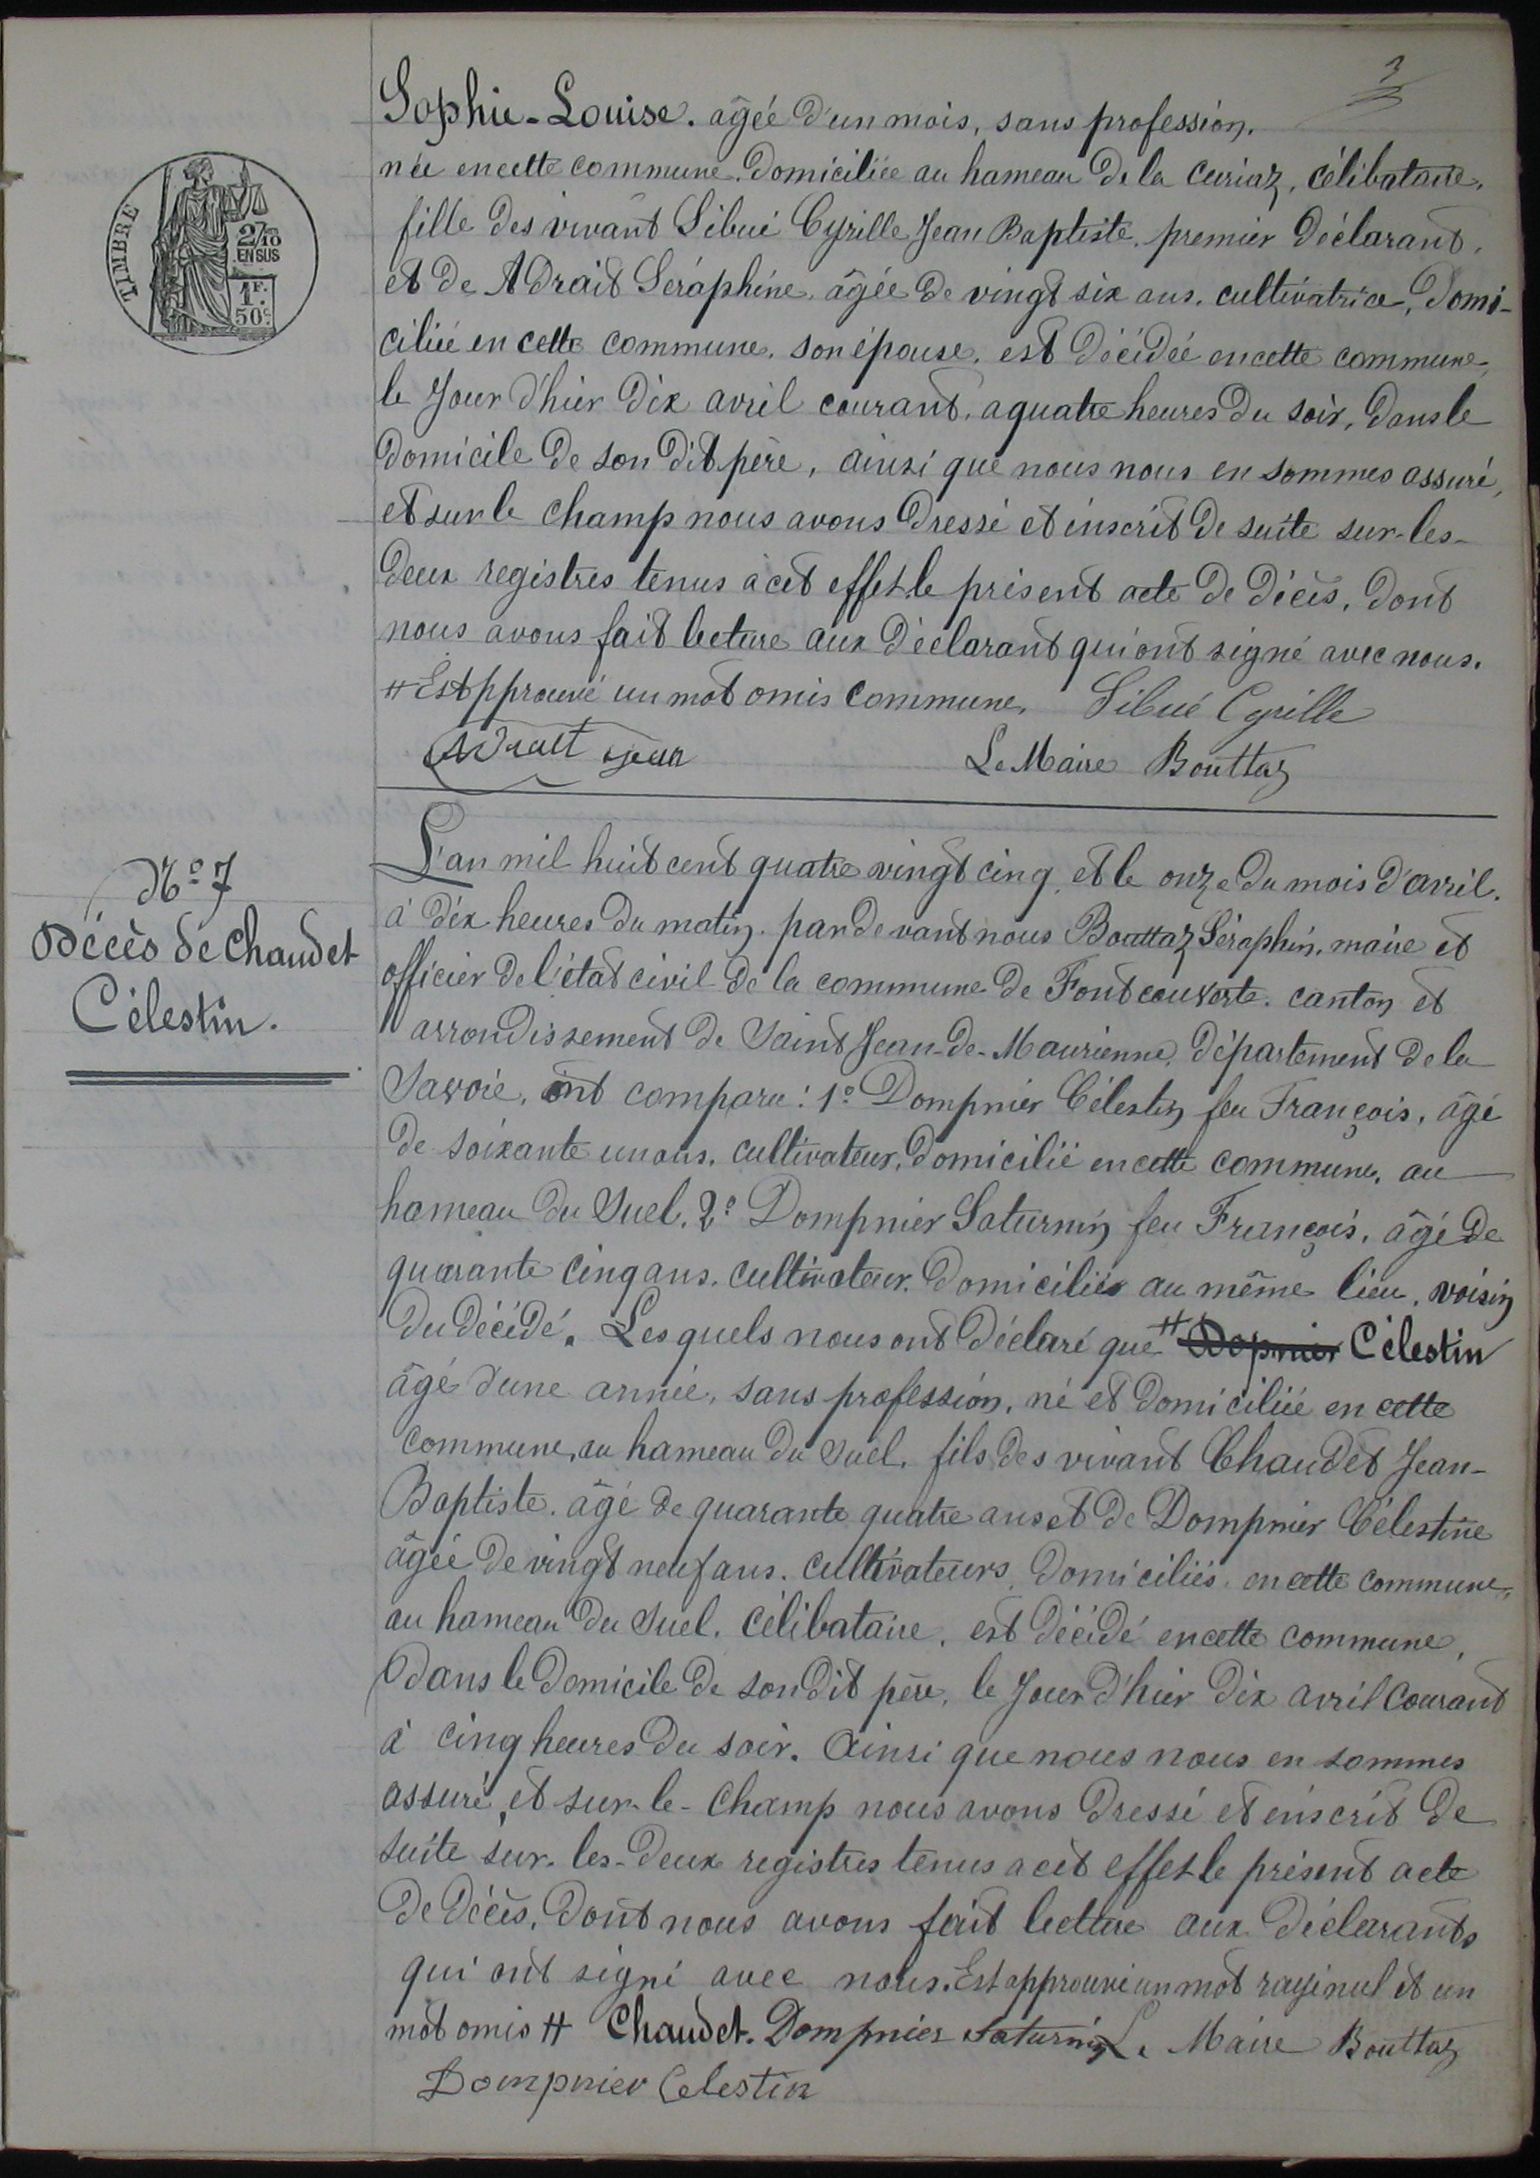 3
Sophie-Louise. âgée d'un mois, sans profession,
née en cette commune. Domiciliée au hameau de la Curiaz, célibataire,
fille des vivant Sibué Cyrille Jean Baptiste, premier déclarant,
et de Adrait Séraphine, âgée de vingt six ans, cultivatrice, domi-
ciliée en cette commune, son épouse, est décédée en cette commune,
le jour d'hier dix avril courant, a quatre heures du soir, dans le
domicile de son dit père, ainsi que nous nous en sommes assuré,
et sur le champ nous avons dressé et inscrit de suite sur-les-
deux registres tenus à cet effet le présent acte de décès, dont
nous avons fait lecture aux déclarant qui ont signé avec nous.
# Est pprouvé un mot omis commune. Sibué Cyrille
Adrait Jean Le Maire Bouttaz
TIMBRE
2/10
EN SUS
1F.
50c.
No 7
Décès de Chaudet
Célestin.
L'an mil huit cent quatre vingt cinq, et le onze du mois d'avril.
à dix heures du matin. par devant nous Bouttaz Séraphin, maire et
officier de l'état civil de la commune de Fontcouverte. canton et
arrondissement de Saint Jean-de-Maurienne, département de la
Savoie, ont comparu : 1o Dompnier Célestin feu François, âgé
de soixante un ans, cultivateur, domicilié en cette commune, au
hameau du Suel, 2o Dompnier Saturnin feu François, âgé de
quarante cinq ans. cultivateur. domiciliés au même lieu, voisin
du décédé. Les quels nous ont déclaré que # Dopnier Célestin
âgé d'une année, sans profession, né et domiciliée en cette
commune, au hameau du Suel, fils des vivant Chaudet Jean-
Baptiste. âgé de quarante quatre ans et de Dompnier Célestine
âgée de vingt neuf ans. cultivateurs, domiciliés en cette commune,
au hameau du Suel. Célibataire, est décédé en cette commune,
dans le domicile de son dit père, le jour d'hier dix avril courant
à cinq heures du soir. Ainsi que nous nous en sommes
assuré, et sur-le-champ nous avons dressé et inscrit de
suite sur-les-deux registres tenus à cet effet le présent acte
de décès, dont nous avons fait lecture aux déclarants
qui ont signé avec nous. Est approuvé un mot rayé nul et un
mot omis # Chaudet. Dompnier Saturnin Le Maire Bouttaz
Dompnier Celestin